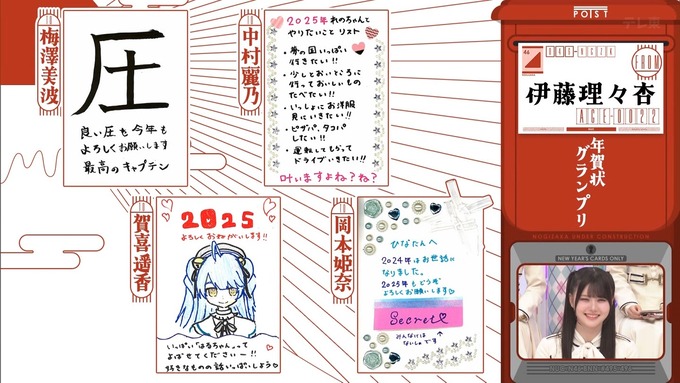 梅澤美波
圧
良い圧も今年も
よろしくお願いします
最高のキャプテン
中村麗乃
2025年 れのちゃんと
やりたいこと リスト
・夢の国いっぱい
行きたい!!
・少しとおいところに
行っておいしいもの
たべたい!!
・いっしょにお洋服
見にいきたい!!
・ピザパ、タコパ
したい!!
・運転してもらって
ドライブいきたい!!
叶いますよね?ね?
賀喜遥香
2025
よろしくおねがいします!!
いっぱい「はるちゃん」って
よばせてくださいー!!
好きなものの話いっぱいしよう
岡本姫奈
ひなたんへ
2024年はお世話に
なりました。
2025年もどうぞ
よろしくお願いします
Secret
↑
みんなには
ないしょです
POIST
テレ東
46
FROM
伊藤理々杏
AGE-0022
年賀状
グランプリ
NOGIZAKA UNDER CONSTRUCTION
NEW YEAR'S CARDS ONLY